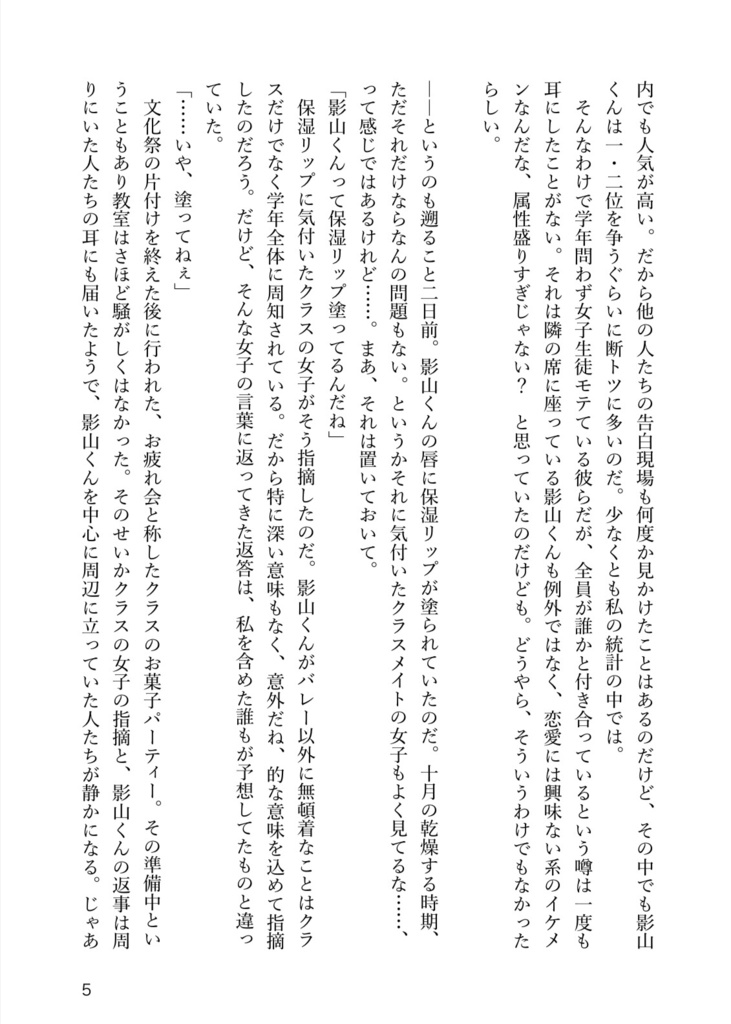 内でも人気が高い。だから他の人たちの告白現場も何度か見かけたことはあるのだけど、その中でも影山
くんは一・二位を争うぐらいに断トツに多いのだ。少なくとも私の統計の中では。
　そんなわけで学年問わず女子生徒モテている彼らだが、全員が誰かと付き合っているという噂は一度も
耳にしたことがない。それは隣の席に座っている影山くんも例外ではなく、恋愛には興味ない系のイケメ
ンなんだな、属性盛りすぎじゃない？　と思っていたのだけども。どうやら、そういうわけでもなかった
らしい。
――というのも遡ること二日前。影山くんの唇に保湿リップが塗られていたのだ。十月の乾燥する時期、
ただそれだけならなんの問題もない。というかそれに気付いたクラスメイトの女子もよく見てるな……、
って感じではあるけれど……。まあ、それは置いておいて。
「影山くんって保湿リップ塗ってるんだね」
　保湿リップに気付いたクラスの女子がそう指摘したのだ。影山くんがバレー以外に無頓着なことはクラ
スだけでなく学年全体に周知されている。だから特に深い意味もなく、意外だね、的な意味を込めて指摘
したのだろう。だけど、そんな女子の言葉に返ってきた返答は、私を含めた誰もが予想してたものと違っ
ていた。
「……いや、塗ってねぇ」
　文化祭の片付けを終えた後に行われた、お疲れ会と称したクラスのお菓子パーティー。その準備中とい
うこともあり教室はさほど騒がしくはなかった。そのせいかクラスの女子の指摘と、影山くんの返事は周
りにいた人たちの耳にも届いたようで、影山くんを中心に周辺に立っていた人たちが静かになる。じゃあ
5